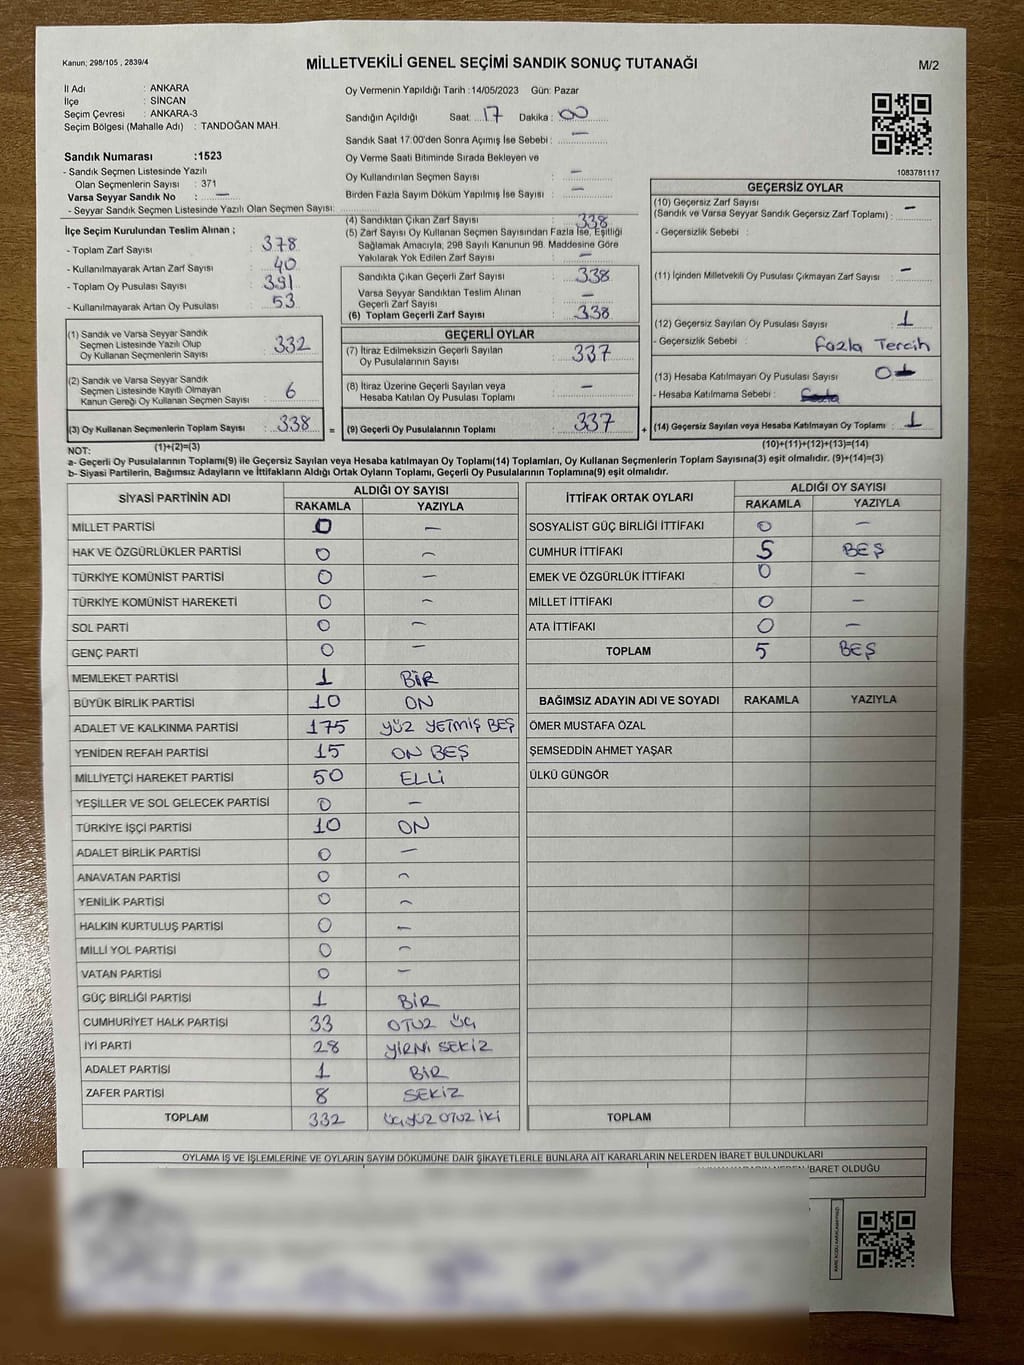 Kanun; 298/105 , 2839/4
MİLLETVEKİLİ GENEL SEÇİMİ SANDIK SONUÇ TUTANAĞI
M/2
İl Adı : ANKARA
İlçe : SİNCAN
Seçim Çevresi : ANKARA-3
Seçim Bölgesi (Mahalle Adı) : TANDOĞAN MAH.
Sandık Numarası :1523
- Sandık Seçmen Listesinde Yazılı
Olan Seçmenlerin Sayısı : 371
Varsa Seyyar Sandık No : —
- Seyyar Sandık Seçmen Listesinde Yazılı Olan Seçmen Sayısı:
Oy Vermenin Yapıldığı Tarih :14/05/2023 Gün: Pazar
Sandığın Açıldığı Saat: 17 Dakika: 00
Sandık Saat 17.00'den Sonra Açımış İse Sebebi : —
Oy Verme Saati Bitiminde Sırada Bekleyen ve
Oy Kullandırılan Seçmen Sayısı : —
Birden Fazla Sayım Döküm Yapılmış İse Sayısı : —
1083781117
İlçe Seçim Kurulundan Teslim Alınan ;
- Toplam Zarf Sayısı : 378
- Kullanılmayarak Artan Zarf Sayısı : 40
- Toplam Oy Pusulası Sayısı : 391
- Kullanılmayarak Artan Oy Pusulası : 53
(1) Sandık ve Varsa Seyyar Sandık
Seçmen Listesinde Yazılı Olup
Oy Kullanan Seçmenlerin Sayısı : 332
(2) Sandık ve Varsa Seyyar Sandık
Seçmen Listesinde Kayıtlı Olmayan
Kanun Gereği Oy Kullanan Seçmen Sayısı : 6
(3) Oy Kullanan Seçmenlerin Toplam Sayısı : 338 =
(1)+(2)=(3)
(4) Sandıktan Çıkan Zarf Sayısı : 338
(5) Zarf Sayısı Oy Kullanan Seçmen Sayısından Fazla İse, Eşitliği
Sağlamak Amacıyla; 298 Sayılı Kanunun 98. Maddesine Göre
Yakılarak Yok Edilen Zarf Sayısı : —
Sandıkta Çıkan Geçerli Zarf Sayısı : 338
Varsa Seyyar Sandıktan Teslim Alınan
Geçerli Zarf Sayısı : —
(6) Toplam Geçerli Zarf Sayısı : 338
GEÇERLİ OYLAR
(7) İtiraz Edilmeksizin Geçerli Sayılan
Oy Pusulalarının Sayısı : 337
(8) İtiraz Üzerine Geçerli Sayılan veya
Hesaba Katılan Oy Pusulası Toplamı : —
(9) Geçerli Oy Pusulalarının Toplamı : 337 +
GEÇERSİZ OYLAR
(10) Geçersiz Zarf Sayısı
(Sandık ve Varsa Seyyar Sandık Geçersiz Zarf Toplamı) : —
- Geçersizlik Sebebi :
(11) İçinden Milletvekili Oy Pusulası Çıkmayan Zarf Sayısı : —
(12) Geçersiz Sayılan Oy Pusulası Sayısı : 1
- Geçersizlik Sebebi : Fazla Tercih
(13) Hesaba Katılmayan Oy Pusulası Sayısı : 0
- Hesaba Katılmama Sebebi :
(14) Geçersiz Sayılan veya Hesaba Katılmayan Oy Toplamı : 1
(10)+(11)+(12)+(13)=(14)
NOT:
a- Geçerli Oy Pusulalarının Toplamı(9) ile Geçersiz Sayılan veya Hesaba katılmayan Oy Toplamı(14) Toplamları, Oy Kullanan Seçmenlerin Toplam Sayısına(3) eşit olmalıdır. (9)+(14)=(3)
b- Siyasi Partilerin, Bağımsız Adayların ve İttifakların Aldığı Ortak Oyların Toplamı, Geçerli Oy Pusulalarının Toplamına(9) eşit olmalıdır.
SİYASİ PARTİNİN ADI ALDIĞI OY SAYISI
RAKAMLA YAZIYLA
MİLLET PARTİSİ 0 —
HAK VE ÖZGÜRLÜKLER PARTİSİ 0 —
TÜRKİYE KOMÜNİST PARTİSİ 0 —
TÜRKİYE KOMÜNİST HAREKETİ 0 —
SOL PARTİ 0 —
GENÇ PARTİ 0 —
MEMLEKET PARTİSİ 1 BİR
BÜYÜK BİRLİK PARTİSİ 10 ON
ADALET VE KALKINMA PARTİSİ 175 YÜZ YETMİŞ BEŞ
YENİDEN REFAH PARTİSİ 15 ON BEŞ
MİLLİYETÇİ HAREKET PARTİSİ 50 ELLİ
YEŞİLLER VE SOL GELECEK PARTİSİ 0 —
TÜRKİYE İŞÇİ PARTİSİ 10 ON
ADALET BİRLİK PARTİSİ 0 —
ANAVATAN PARTİSİ 0 —
YENİLİK PARTİSİ 0 —
HALKIN KURTULUŞ PARTİSİ 0 —
MİLLİ YOL PARTİSİ 0 —
VATAN PARTİSİ 0 —
GÜÇ BİRLİĞİ PARTİSİ 1 BİR
CUMHURİYET HALK PARTİSİ 33 OTUZ ÜÇ
İYİ PARTİ 28 YİRMİ SEKİZ
ADALET PARTİSİ 1 BİR
ZAFER PARTİSİ 8 SEKİZ
TOPLAM 332 ÜÇYÜZ OTUZ İKİ
İTTİFAK ORTAK OYLARI ALDIĞI OY SAYISI
RAKAMLA YAZIYLA
SOSYALİST GÜÇ BİRLİĞİ İTTİFAKI 0 —
CUMHUR İTTİFAKI 5 BEŞ
EMEK VE ÖZGÜRLÜK İTTİFAKI 0 —
MİLLET İTTİFAKI 0 —
ATA İTTİFAKI 0 —
TOPLAM 5 BEŞ
BAĞIMSIZ ADAYIN ADI VE SOYADI RAKAMLA YAZIYLA
ÖMER MUSTAFA ÖZAL
ŞEMSEDDİN AHMET YAŞAR
ÜLKÜ GÜNGÖR
TOPLAM
OYLAMA İŞ VE İŞLEMLERİNE VE OYLARIN SAYIM DÖKÜMÜNE DAİR ŞİKAYETLERLE BUNLARA AİT KARARLARIN NELERDEN İBARET BULUNDUKLARI
İBARET OLDUĞU